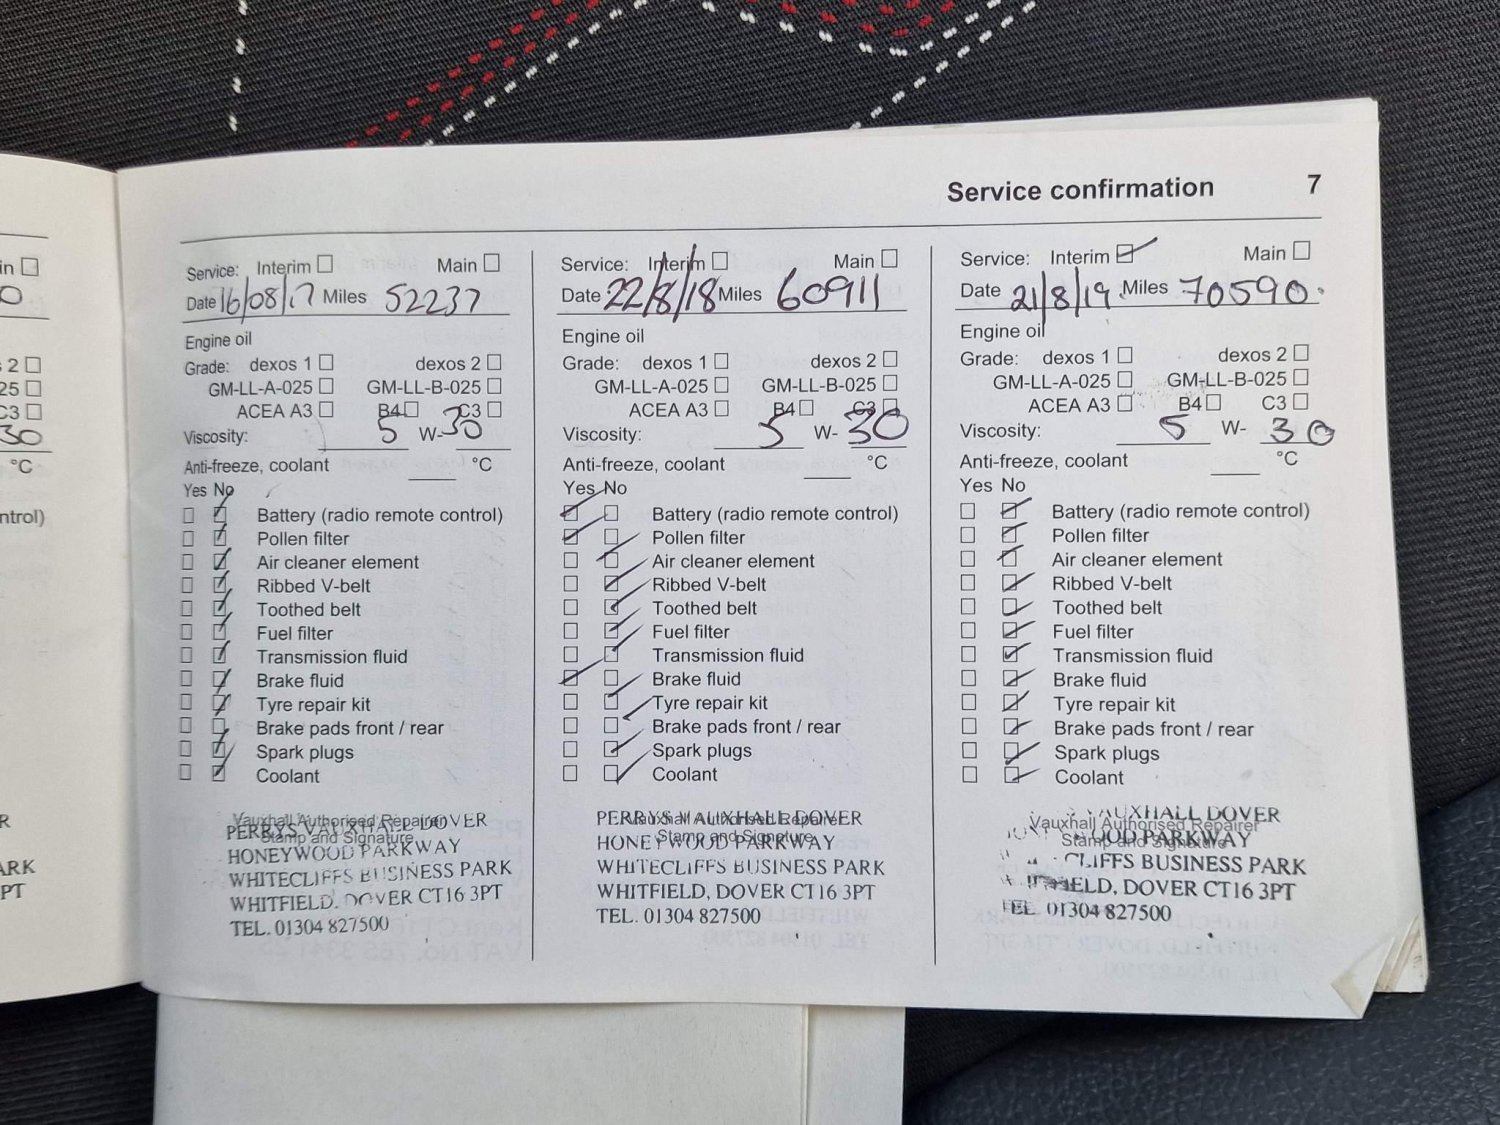 Service confirmation 7
in ☐
0
s 2 ☐
25 ☐
C3 ☐
30
°C
ntrol)
R
ARK
PT
Service: Interim ☐ Main ☐
Date 16/08/17 Miles 52237
Engine oil
Grade: dexos 1 ☐ dexos 2 ☐
GM-LL-A-025 ☐ GM-LL-B-025 ☐
ACEA A3 ☐ B4 ☐ C3 ☐
Viscosity: 5 W- 30
Anti-freeze, coolant °C
Yes No
Battery (radio remote control)
Pollen filter
Air cleaner element
Ribbed V-belt
Toothed belt
Fuel filter
Transmission fluid
Brake fluid
Tyre repair kit
Brake pads front / rear
Spark plugs
Coolant
Vauxhall Authorised Repairer
Stamp and Signature
PERRYS VAUXHALL DOVER
HONEYWOOD PARKWAY
WHITECLIFFS BUSINESS PARK
WHITFIELD, DOVER CT16 3PT
TEL. 01304 827500
Service: Interim ☐ Main ☐
Date 22/8/18 Miles 60911
Engine oil
Grade: dexos 1 ☐ dexos 2 ☐
GM-LL-A-025 ☐ GM-LL-B-025 ☐
ACEA A3 ☐ B4 ☐ C3 ☐
Viscosity: 5 W- 30
Anti-freeze, coolant °C
Yes No
Battery (radio remote control)
Pollen filter
Air cleaner element
Ribbed V-belt
Toothed belt
Fuel filter
Transmission fluid
Brake fluid
Tyre repair kit
Brake pads front / rear
Spark plugs
Coolant
Vauxhall Authorised Repairer
Stamp and Signature
PERRYS VAUXHALL DOVER
HONEYWOOD PARKWAY
WHITECLIFFS BUSINESS PARK
WHITFIELD, DOVER CT16 3PT
TEL. 01304 827500
Service: Interim ☑ Main ☐
Date 21/8/19 Miles 70590
Engine oil
Grade: dexos 1 ☐ dexos 2 ☐
GM-LL-A-025 ☐ GM-LL-B-025 ☐
ACEA A3 ☐ B4 ☐ C3 ☐
Viscosity: 5 W- 30
Anti-freeze, coolant °C
Yes No
Battery (radio remote control)
Pollen filter
Air cleaner element
Ribbed V-belt
Toothed belt
Fuel filter
Transmission fluid
Brake fluid
Tyre repair kit
Brake pads front / rear
Spark plugs
Coolant
Vauxhall Authorised Repairer
Stamp and Signature
VAUXHALL DOVER
OOD PARKWAY
CLIFFS BUSINESS PARK
IELD, DOVER CT16 3PT
TEL. 01304 827500